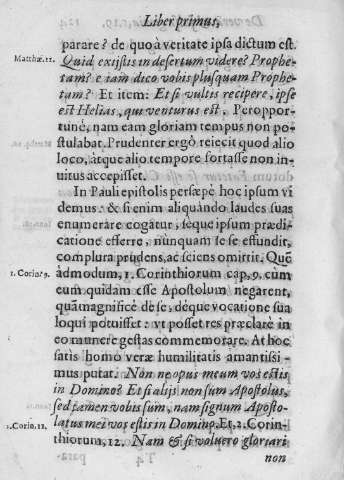 Liber primus,
parare? de quo à veritate ipsa dictum est.
Matthæ.11. Quid existis in desertum videre? Prophe-
tam? etiam dico vobis plusquam Prophe-
tam? Et item: Et si vultis recipere, ipse
est Helias, qui venturus est. Peroppor-
tunè, nam eam gloriam tempus non po-
stulabat. Prudenter ergò reiecit quod alio
loco, atque alio tempore fortasse non in-
uitus accepisset.
In Pauli epistolis persæpè hoc ipsum vi
demus: & si enim aliquàndo laudes suas
enumerare cogãtur, seque ipsum prædi-
catione efferre, nunquam se se effundit,
complura prudens, ac sciens omittit. Quẽ
1. Corin. 9. admodum, 1. Corinthiorum cap, 9, cùm
eum quidam esse Apostolum negarent,
quã magnificè de se, déque vocatione sua
loqui potuisset: vt posset res præclarè in
eo munere gestas commemorare. At hoc
satis homo veræ humilitatis amantissi-
mus putat. Non ne opus meum vos estis
in Domino? Et si alijs non sum Apostolus,
sed tamen vobis sum, nam signum Aposto-
1. Corio. 11. latus mei vos estis in Domino. Et, 2. Corin-
thiorum, 12. Nam & si voluero gloriari
non